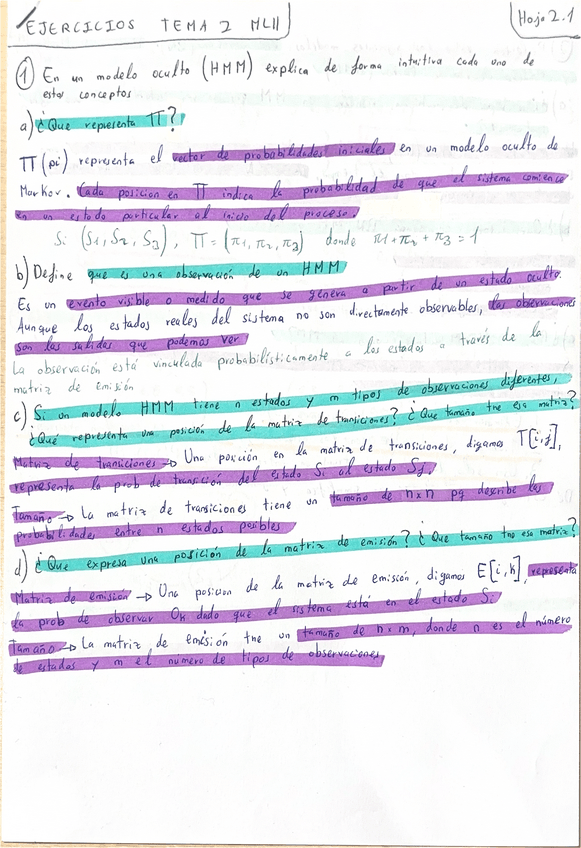 EJERCICIOS TEMA 2 MLII
Hoja 2.1
① En un modelo oculto (HMM) explica de forma intuitiva cada uno de
estos conceptos
a) ¿Que representa Π?
Π (pi) representa el vector de probabilidades iniciales en un modelo oculto de
Markov. Cada posicion en Π indica la probabilidad de que el sistema comience
en un estado particular al inicio del proceso.
Si (S1, S2, S3), Π = (π1, π2, π3) donde π1 + π2 + π3 = 1
b) Define que es una observación de un HMM
Es un evento visible o medido que se genera a partir de un estado oculto.
Aunque los estados reales del sistema no son directamente observables, las observaciones
son las salidas que podemos ver
La observación está vinculada probabilísticamente a los estados a través de la
matriz de emisión
c) Si un modelo HMM tiene n estados y m tipos de observaciones diferentes,
¿Qué representa una posición de la matriz de transiciones? ¿Que tamaño tne esa matriz?
Matriz de transiciones → Una posición en la matriz de transiciones, digamos T[i,j],
representa la prob de transición del estado Si al estado Sj.
Tamaño → La matriz de transiciones tiene un tamaño de n×n pq describe las
probabilidades entre n estados posibles
d) ¿Que expresa una posición de la matriz de emisión? ¿Que tamaño tne esa matriz?
Matriz de emision → Una posicion de la matriz de emisión, digamos E[i,k], representa
la prob de observar Ok dado que el sistema está en el estado Si
Tamaño → La matriz de emisión tne un tamaño de n×m, donde n es el número
de estados y m el número de tipos de observaciones